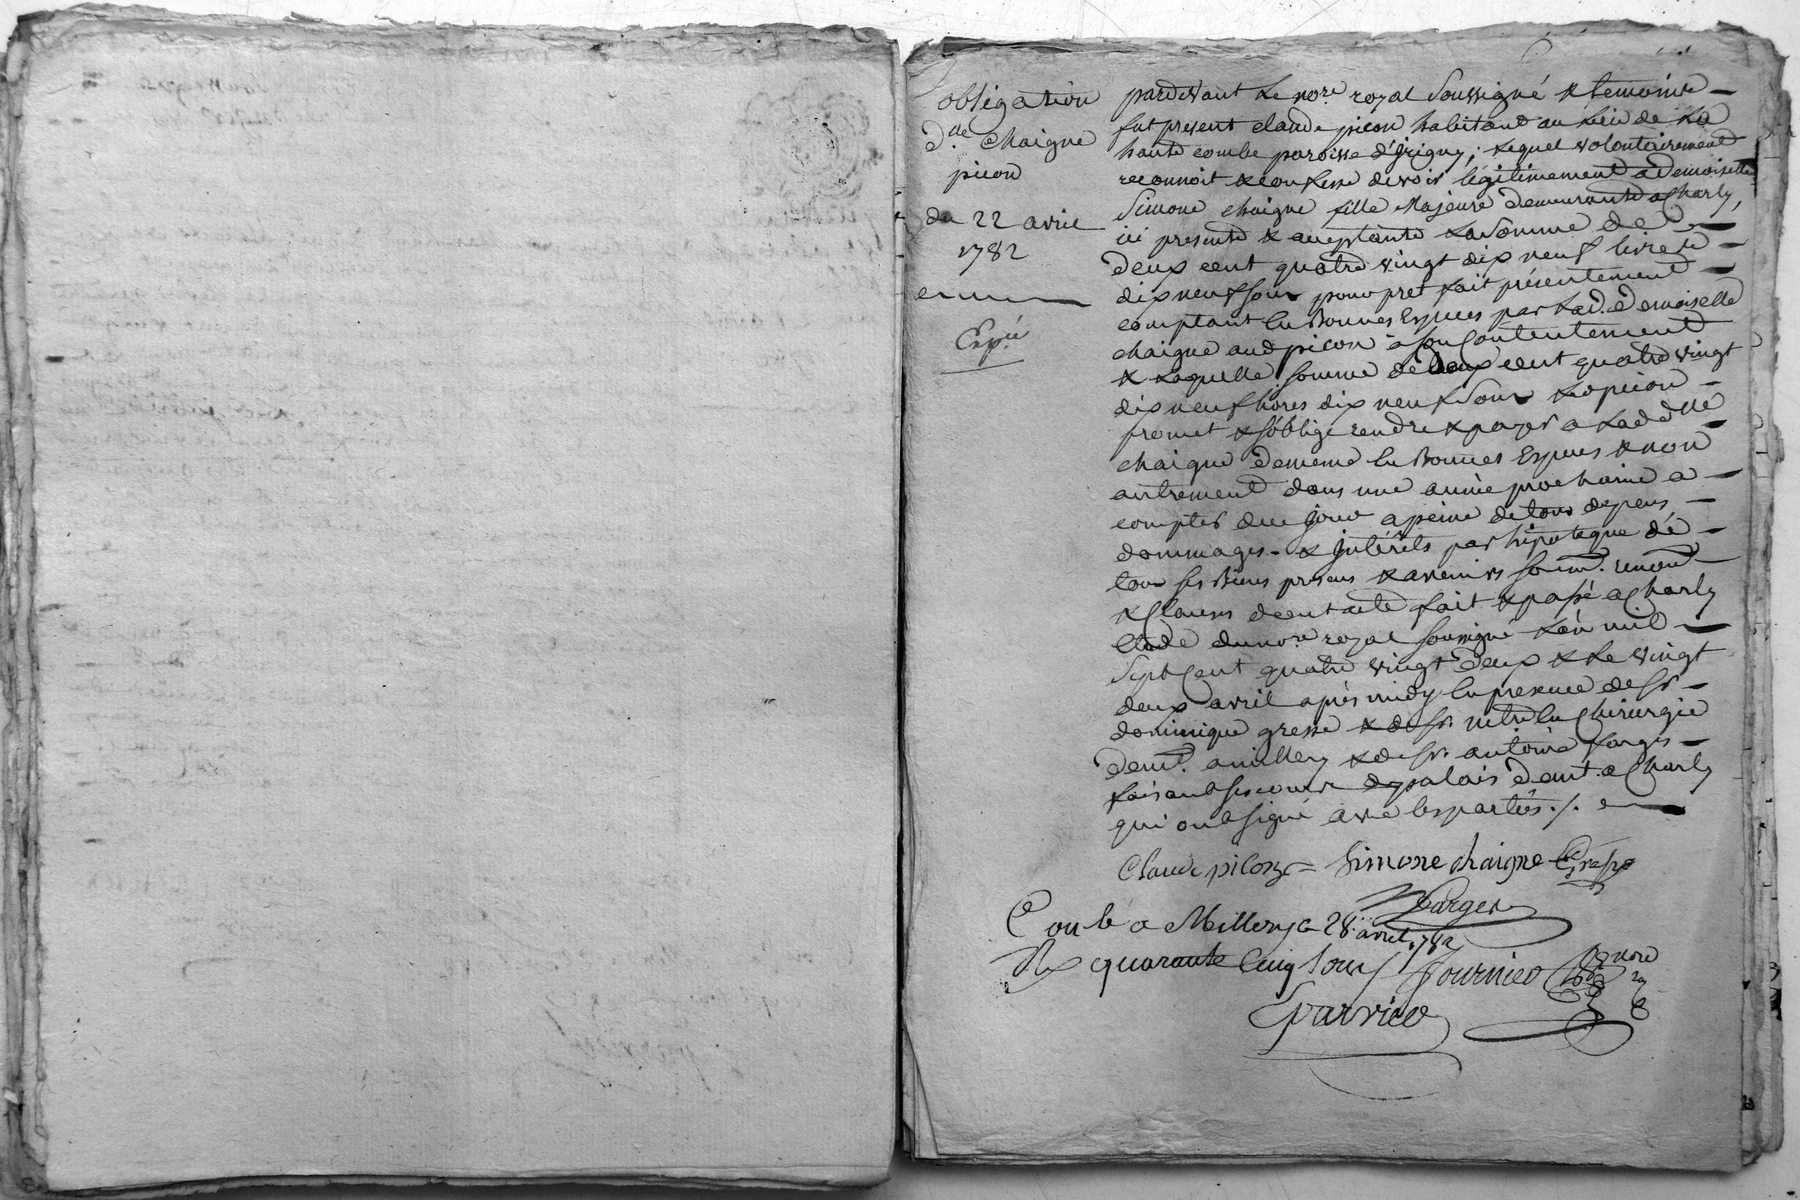 obligation
d.lle Chaigne
picon
du 22 avril
1782
Expé
pardevant Le no.re royal soussigné & temoins
fut present claude picon habitant au Lieu de La
haute combe paroisse d'Grigny, Lequel volontairement
reconnoit & confesse devoir légitimement a Demoiselle
Simone chaigne fille Majeure demeurante a Charly,
ici presente & acceptante La somme de
deux cent quatre vingt dix neuf livres
dix neuf sous pour pret fait présentement
comptant En Bonnes Especes par Lad. Demoiselle
chaigne aud picon a son Contentement
& Laquelle somme de deux cent quatre vingt
dix neuf livres dix neuf sous Led picon
promet & s'oblige rendre & payer a Lad dlle
chaigne de meme En Bonnes Especes & non
autrement dans une année prochaine a
compter de ce jour a peine de tous depens,
dommages & Intérêts par hipoteque de
tous ses Biens presens & avenirs soum. renont
& Clauses dont acte fait & passé a Charly
Etude du no.re royal soussigné L'an mil
Sept Cent quatre vingt deux & Le vingt
deux avril après midy En presence de Sr
dominique gresse & de Sr. me En Chirurgie
demt. a millery & de Sr. antoine farges
faisant ses cours de palais demt. a Charly
qui ont signé avec les parties ./.
Claude picon = Simone chaigne Gresse
Farges
Conlé a Millery Le 28 avril 1782
Rx quarante Cinq sous / Fournier
Parrico